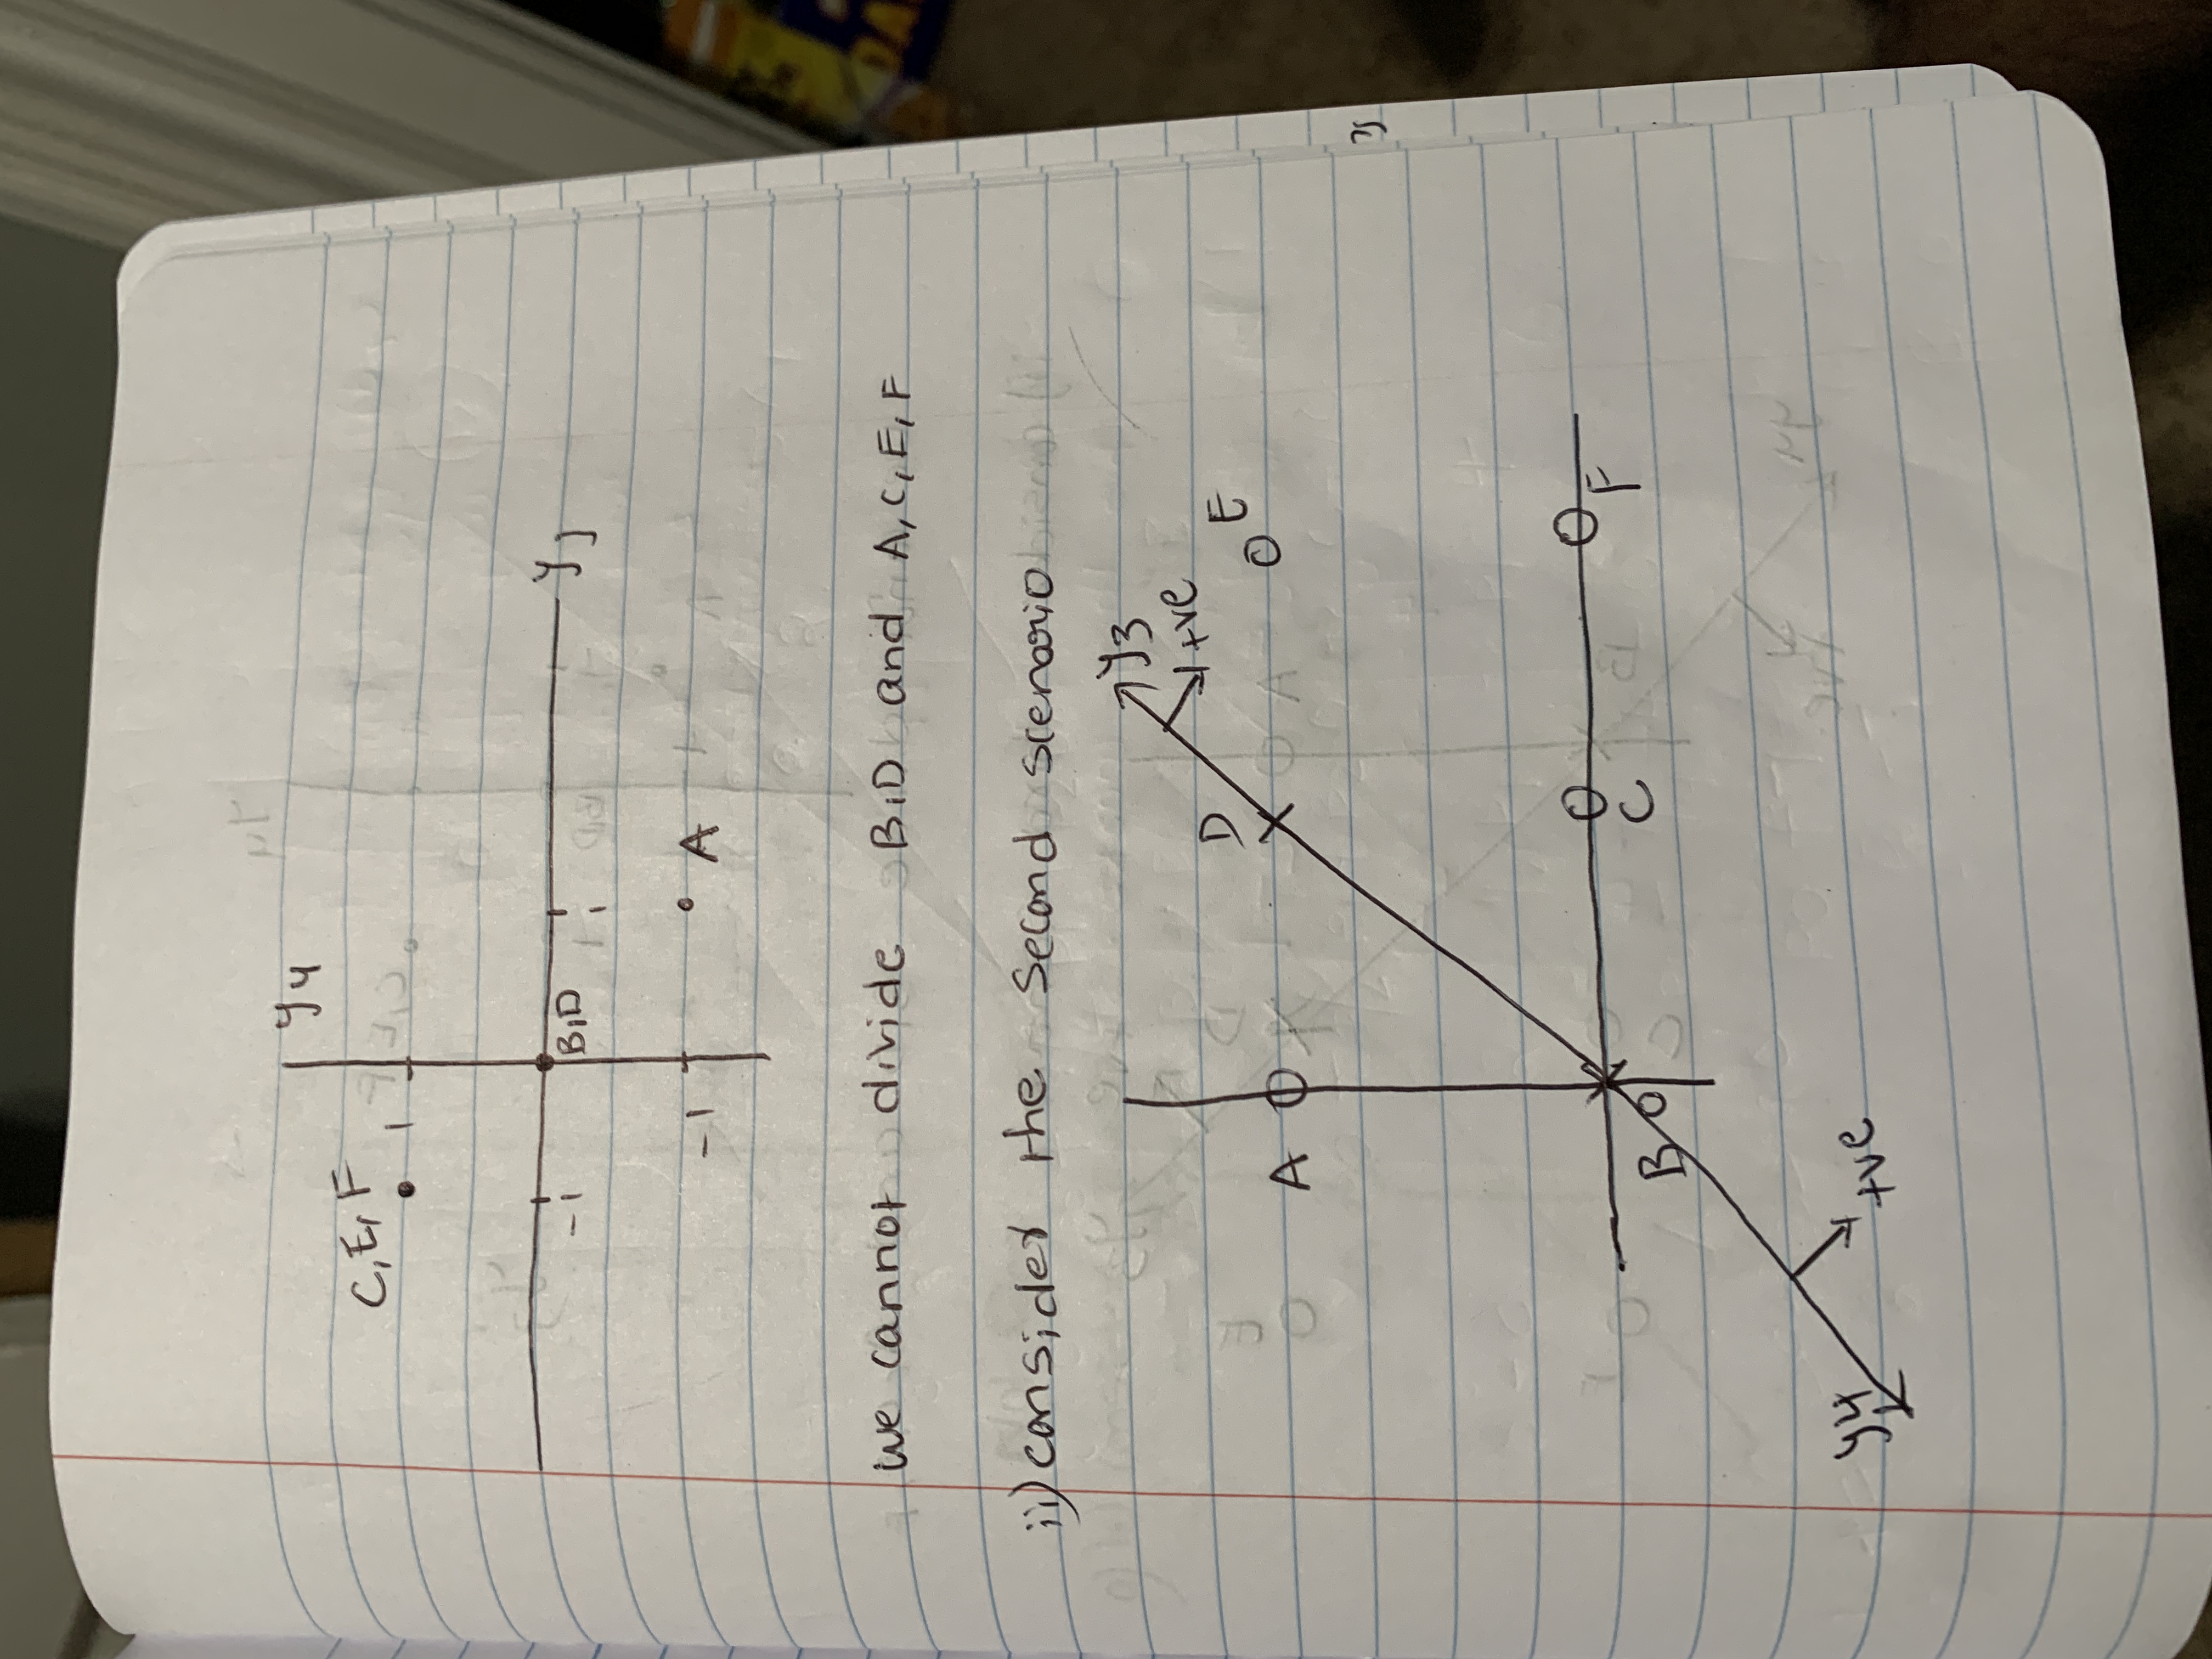 y4
C, E, F
1
-1
B,D
1
yj
-1
A
we cannot divide B,D and A, C, E, F
ii) consider the second scenario
y3
+ve
D
E
A
B
O
C
F
y4
+ve